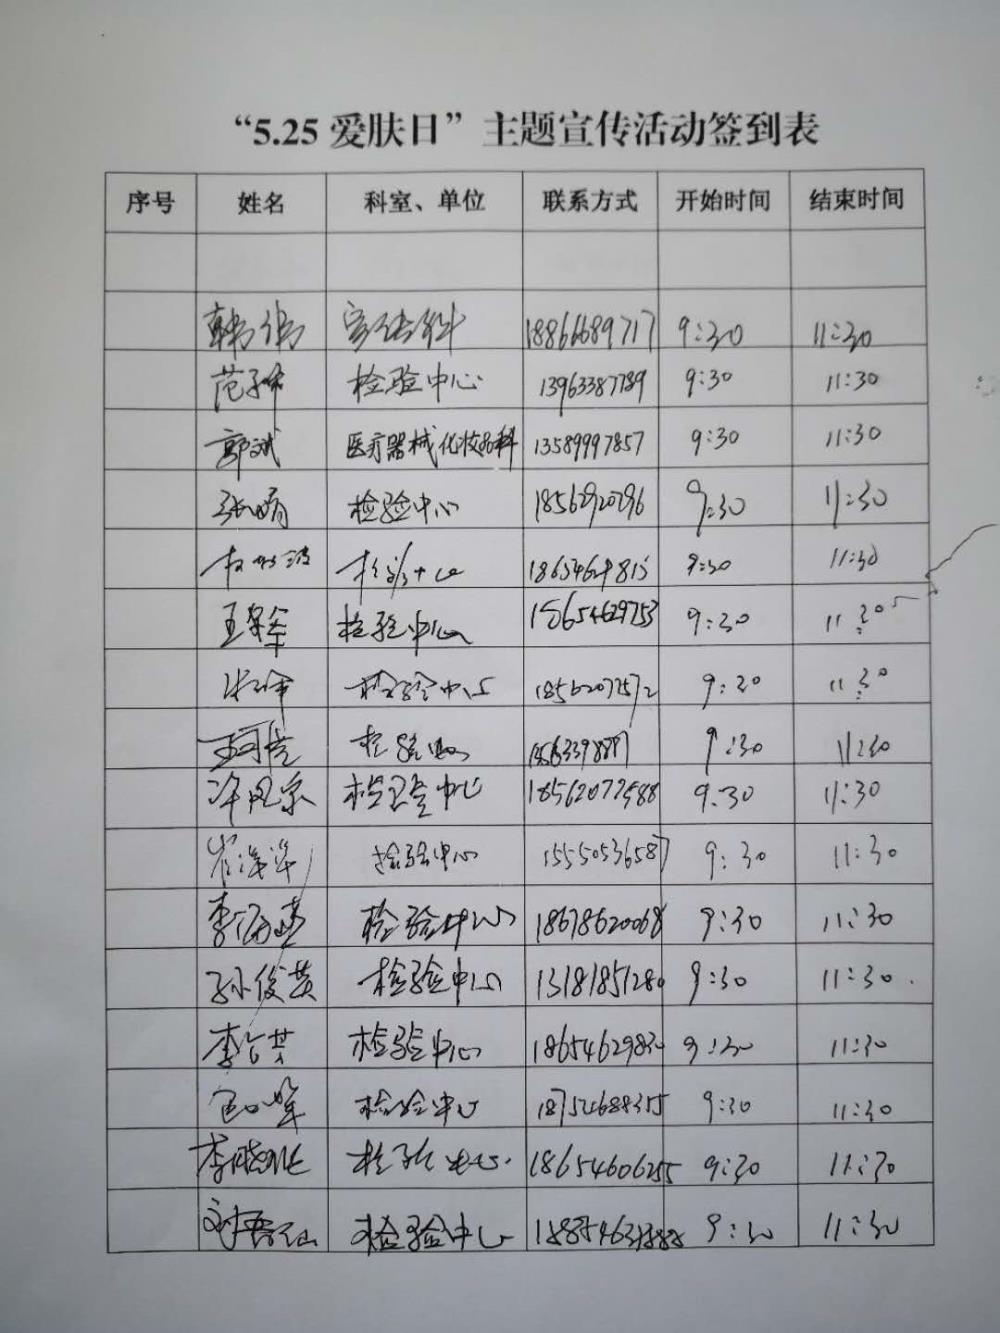 “5.25 爱肤日”主题宣传活动签到表
序号 姓名 科室、单位 联系方式 开始时间 结束时间
韩伟 宣传科 18866689717 9:30 11:30
检验中心 13963387789 9:30 11:30
郭斌 医疗器械化妆品科 13589997857 9:30 11:30
张娟 检验中心 18562920296 9:30 11:30
检验中心 9:30 11:30
检验中心 18654629753 9:30 11:30
检验中心 18562072572 9:30 11:30
检验中心 9:30 11:30
许凤宗 检验中心 18562072588 9:30 11:30
检验中心 15550536587 9:30 11:30
李海燕 检验中心 18678620068 9:30 11:30
孙俊英 检验中心 13181851280 9:30 11:30
检验中心 18654629830 9:30 11:30
检验中心 18754688355 9:30 11:30
李晓 检验中心 18654606255 9:30 11:30
检验中心 9:30 11:30